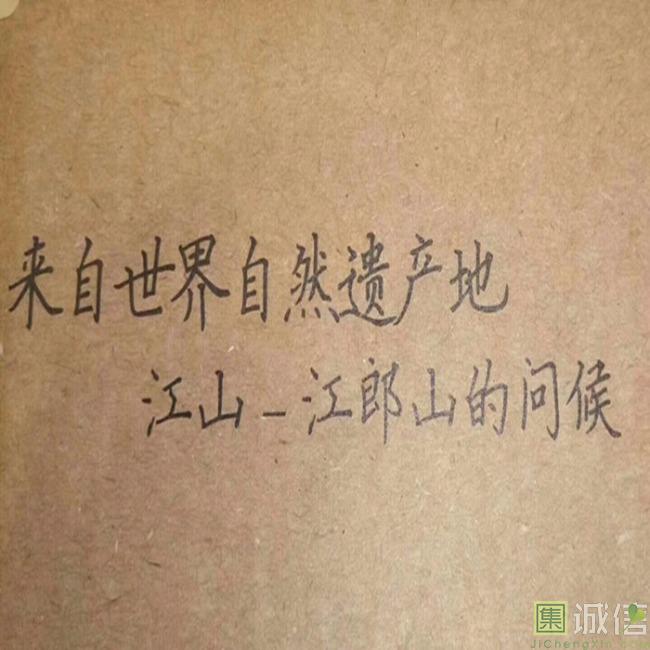 来自世界自然遗产地
江山-江郎山的问候
集 诚信
JiChengXin.Com